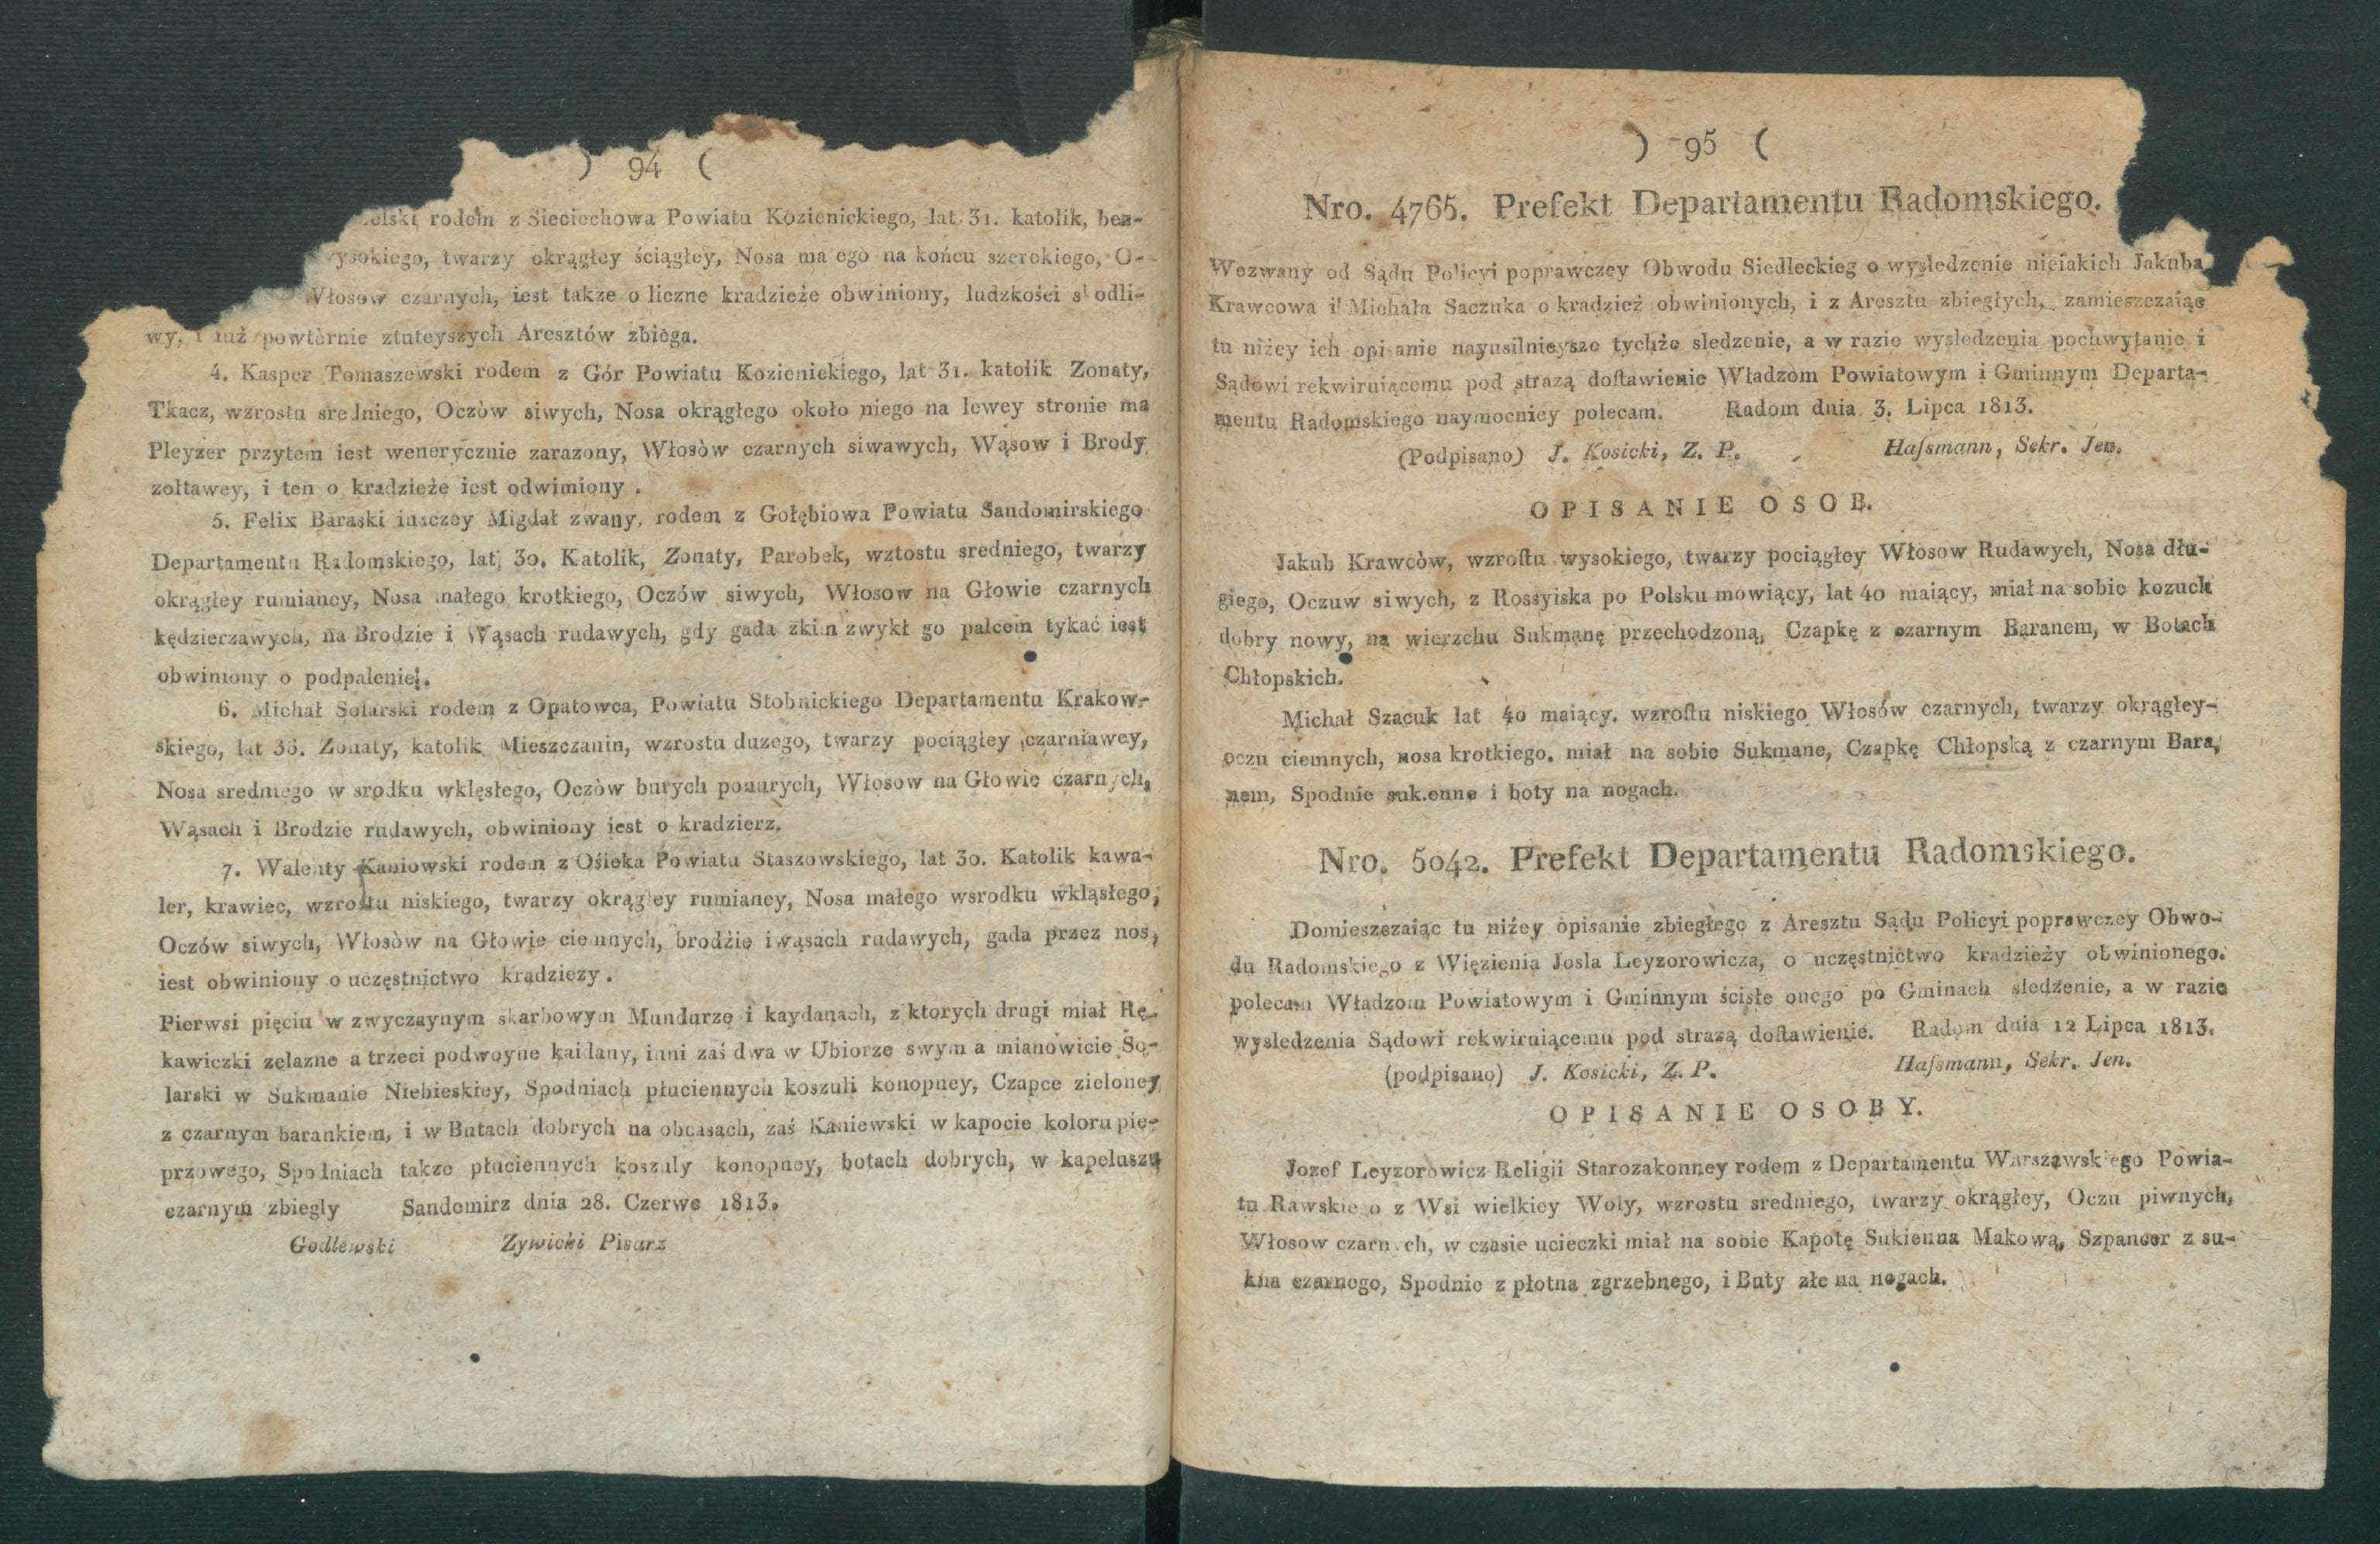 ) 94 (
elski rodem z Sieciechowa Powiatu Kozienickiego, lat 31. katolik, bez-
ysokiego, twarzy okrągłey ściągłey, Nosa ma ego na końcu szerokiego, O-
Włosow czarnych, iest takze o liczne kradzieże obwiniony, ludzkości s odli-
wy, i iuż powtòrnie ztuteyszych Aresztów zbiega.
4. Kasper Tomaszewski rodem z Gór Powiatu Kozienickiego, lat 31. katolik Zonaty,
Tkacz, wzrostu sredniego, Oczòw siwych, Nosa okrągłego około niego na lewey stronie ma
Pleyzer przytem iest wenerycznie zarazony, Włosòw czarnych siwawych, Wąsow i Brody
zoltawey, i ten o kradzieże iest odwimiony .
5. Felix Baraski inaczey Migdał zwany, rodem z Gołębiowa Powiatu Sandomirskiego
Departamentu Radomskiego, lat 30. Katolik, Zonaty, Parobek, wztostu sredniego, twarzy
okrągłey rumianey, Nosa małego krotkiego, Oczów siwych, Włosow na Głowie czarnych
kędzierzawych, na Brodzie i Wąsach rudawych, gdy gada zkim zwykł go palcem tykać iest
obwiniony o podpalenie.
6. Michał Solarski rodem z Opatowca, Powiatu Stobnickiego Departamentu Krakow-
skiego, lat 36. Zonaty, katolik Mieszczanin, wzrostu duzego, twarzy pociągłey czarniawey,
Nosa sredniego w srodku wklęsłego, Oczòw burych ponurych, Włosow na Głowie czarnych,
Wąsach i Brodzie rudawych, obwiniony iest o kradzierz.
7. Walenty Kaniowski rodem z Ośieka Powiatu Staszowskiego, lat 30. Katolik kawa-
ler, krawiec, wzrostu niskiego, twarzy okrągłey rumianey, Nosa małego wsrodku wkląsłego,
Oczów siwych, Włosòw na Głowie ciemnych, brodźie i wąsach rudawych, gada przez nos,
iest obwiniony o uczęstnictwo kradziezy .
Pierwsi pięciu w zwyczaynym skarbowym Mundurze i kaydanach, z ktorych drugi miał Rę-
kawiczki zelazne a trzeci podwoyne kaidany, inni zaś dwa w Ubiorze swym a mianowicie So-
larski w Sukmanie Niebieskiey, Spodniach płuciennych koszuli konopney, Czapce zieloney
z czarnym barankiem, i w Butach dobrych na obcasach, zaś Kaniewski w kapocie koloru pie-
przowego, Spodniach takze płuciennych koszuly konopney, botach dobrych, w kapeluszu
czarnym zbiegly Sandomirz dnia 28. Czerwe 1813.
Godlewski Zywicki Pisarz
) 95 (
Nro. 4765. Prefekt Departamentu Radomskiego.
Wezwany od Sądu Policyi poprawczey Obwodu Siedleckieg o wysledzenie nieiakich Jakuba
Krawcowa i Michała Saczuka o kradzież obwinionych, i z Aresztu zbiegłych, zamieszczaiąc
tu niżey ich opisanie nayusilnieysze tychże sledzenie, a w razie wysledzenia pochwytanie i
Sądowi rekwiruiącemu pod strazą doſtawienie Władzom Powiatowym i Gminnym Departa-
mentu Radomskiego naymocniey polecam. Radom dnia 3. Lipca 1813.
(Podpisano) J. Kosicki, Z. P. Haſsmann, Sekr. Jen.
OPISANIE OSOB.
Jakub Krawcòw, wzroſtu wysokiego, twarzy pociągłey Włosow Rudawych, Nosa dłu-
giego, Oczuw siwych, z Rossyiska po Polsku mowiący, lat 40 maiący, miał na sobie kozuch
dobry nowy, na wierzchu Sukmanę przechodzoną, Czapkę z czarnym Baranem, w Botach
Chłopskich.
Michał Szacuk lat 40 maiący. wzroſtu niskiego Włosów czarnych, twarzy okrągłey-
oczu ciemnych, nosa krotkiego. miał na sobie Sukmane, Czapkę Chłopską z czarnym Bara,
nem, Spodnie suk.enne i boty na nogach.
Nro. 5042. Prefekt Departamentu Radomskiego.
Domieszczaiąc tu niźey opisanie zbiegłego z Aresztu Sądu Policyi poprawczey Obwo-
du Radomskiego z Więzienia Josla Leyzorowicza, o uczęstnictwo kradzieży obwinionego.
polecam Władzom Powiatowym i Gminnym ścisłe onego po Gminach sledzenie, a w razie
wysledzenia Sądowi rekwiruiącemu pod strazą doſtawienie. Radom dnia 12 Lipca 1813.
(podpisano) J. Kosicki, Z. P. Haſsmann, Sekr. Jen.
OPISANIE OSOBY.
Jozef Leyzorowicz Religii Starozakonney rodem z Departamentu Warszawskiego Powia-
tu Rawskiego z Wsi wielkiey Woly, wzrostu sredniego, twarzy okrągłey, Oczu piwnych,
Włosow czarnych, w czasie ucieczki miał na sobie Kapotę Sukienna Makową, Szpancer z su-
kna czarnego, Spodnie z płotna zgrzebnego, i Buty złe na nogach.